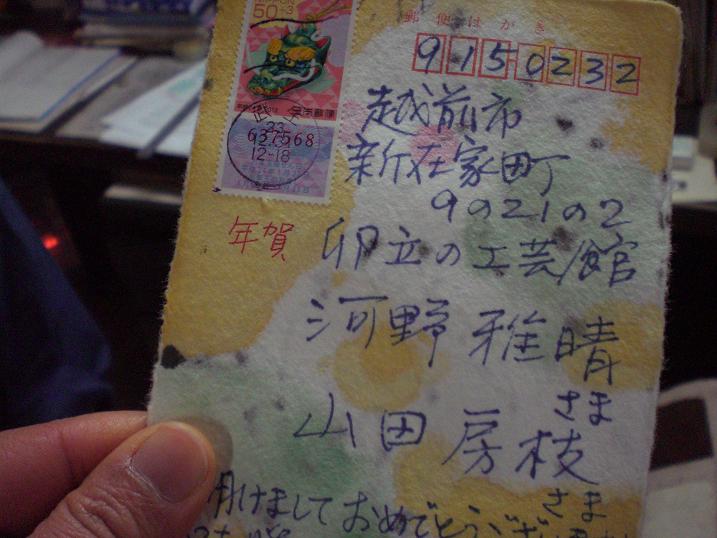 50
郵便はがき
9150232
越前市
新在家町
9の21の2
年賀
卯立の工芸館
河野 雅晴
さま
山田 房枝
さま
明けまして おめでとうござ
637568
12-18
日本郵便